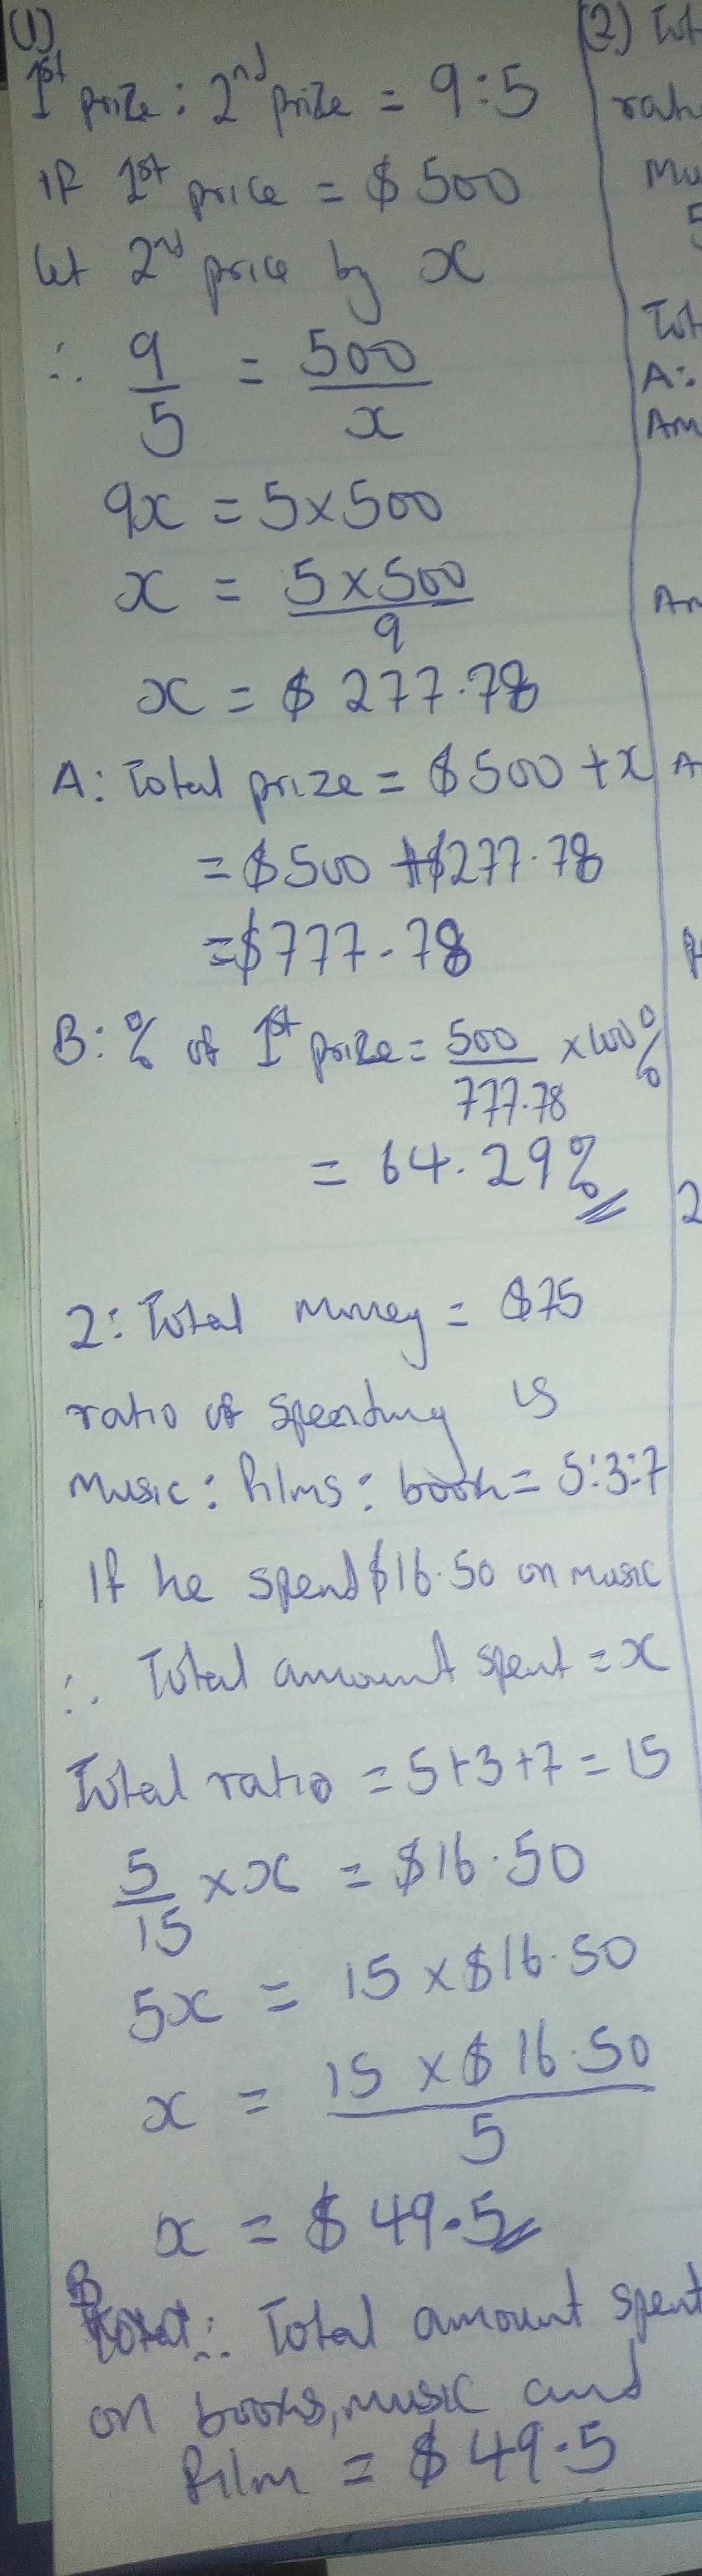 (1)
1st prize : 2nd prize = 9:5
If 1st price = $500
let 2nd price by x
∴ 9/5 = 500/x
9x = 5×500
x = 5×500/9
x = $277.78
A: Total prize = $500 + x
= $500 + $277.78
= $777.78
B: % of 1st prize = 500/777.78 × 100%
= 64.29%
2: Total money = $75
ratio of spending is
music : films : book = 5:3:7
If he spend $16.50 on music
∴ Total amount spent = x
Total ratio = 5+3+7 = 15
5/15 × x = $16.50
5x = 15 × $16.50
x = 15 × $16.50/5
x = $49.5
B ∴ Total amount spent
on books, music and
film = $49.5
(2) Tot
rat
Mu
5
Tot
A:
Am
Am
A
2